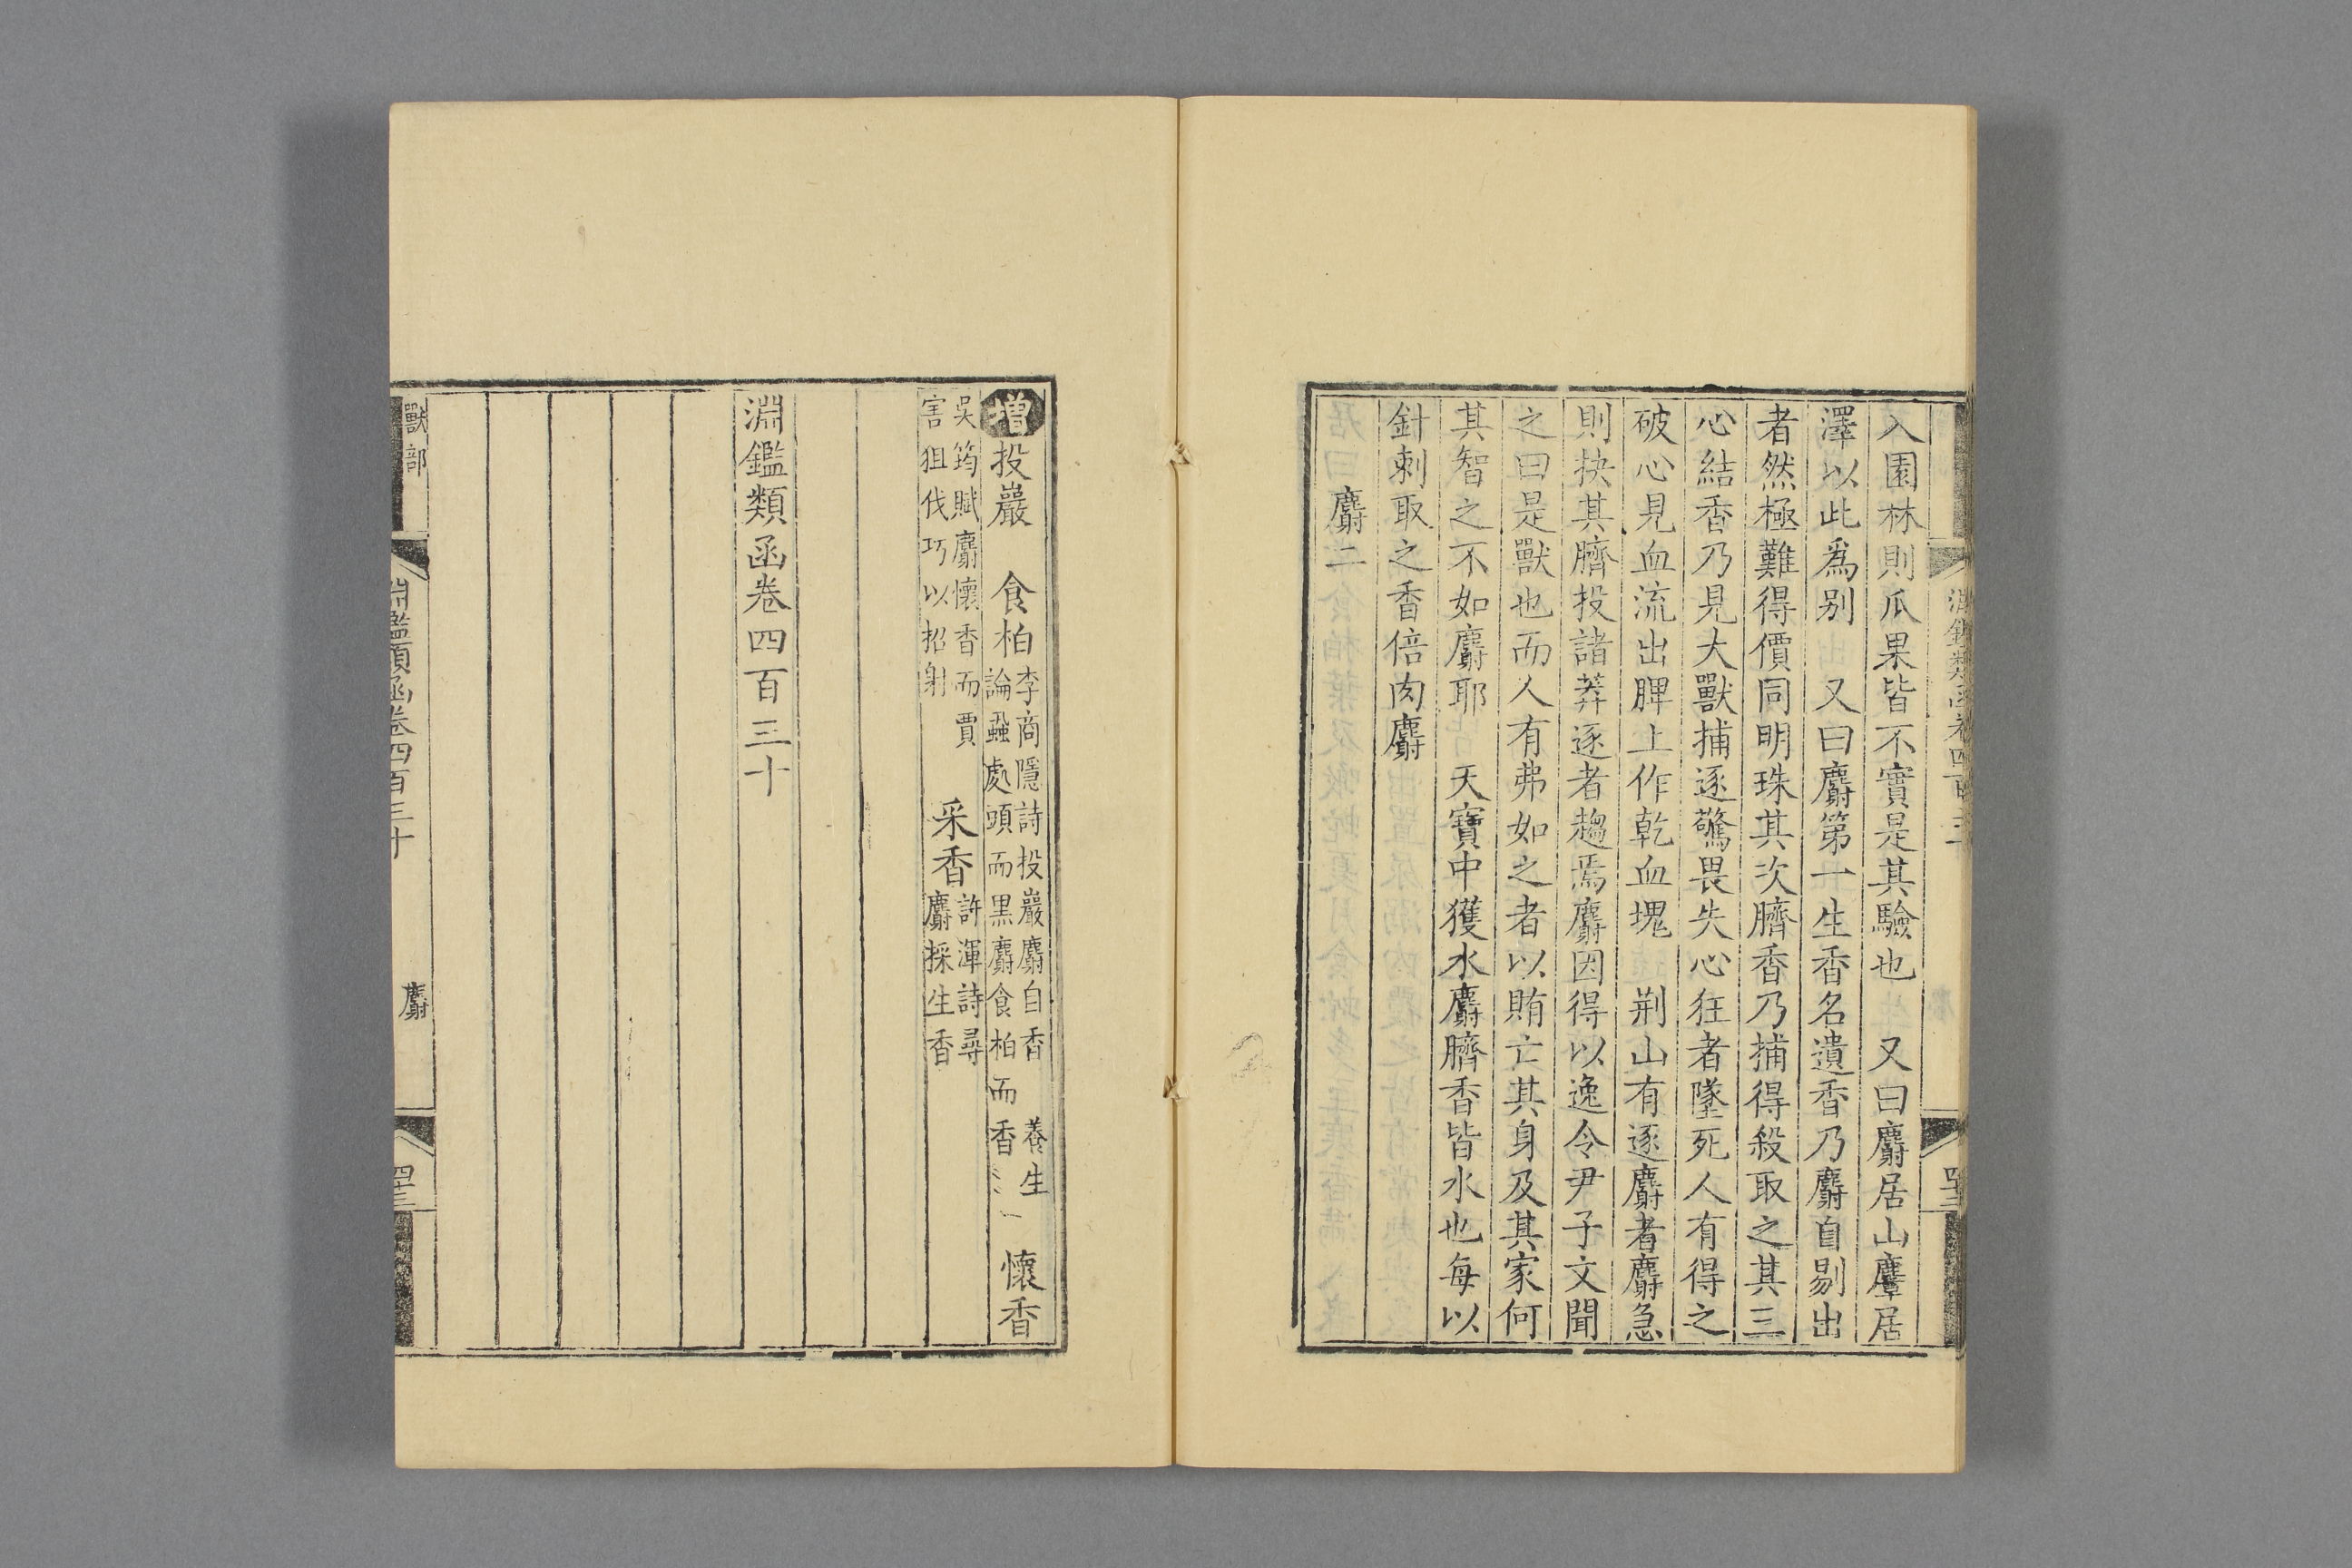 入園林則瓜果皆不實是其驗也　又曰麝居山麞居
澤以此爲别　又曰麝第一生香名遺香乃麝自剔出
者然極難得價同明珠其次臍香乃捕得殺取之其三
心結香乃見大獸捕逐驚畏失心狂者墜死人有得之
破心見血流出脾上作乾血塊　荆山有逐麝者麝急
則抉其臍投諸莽逐者趨焉麝因得以逸令尹子文聞
之曰是獸也而人有弗如之者以賄亡其身及其家何
其智之不如麝耶　天寶中獲水麝臍香皆水也每以
針刺取之香倍肉麝
麝二
增投巖　食柏
李商隱詩投巖麝自香　養生
論蝨處頭而黑麝食柏而香
懷香
吳筠賦麝懷香而賈
害狙伐巧以招射
采香
許渾詩尋
麝採生香
淵鑑類函卷四百三十
獸部
淵鑑類函卷四百三十
麝